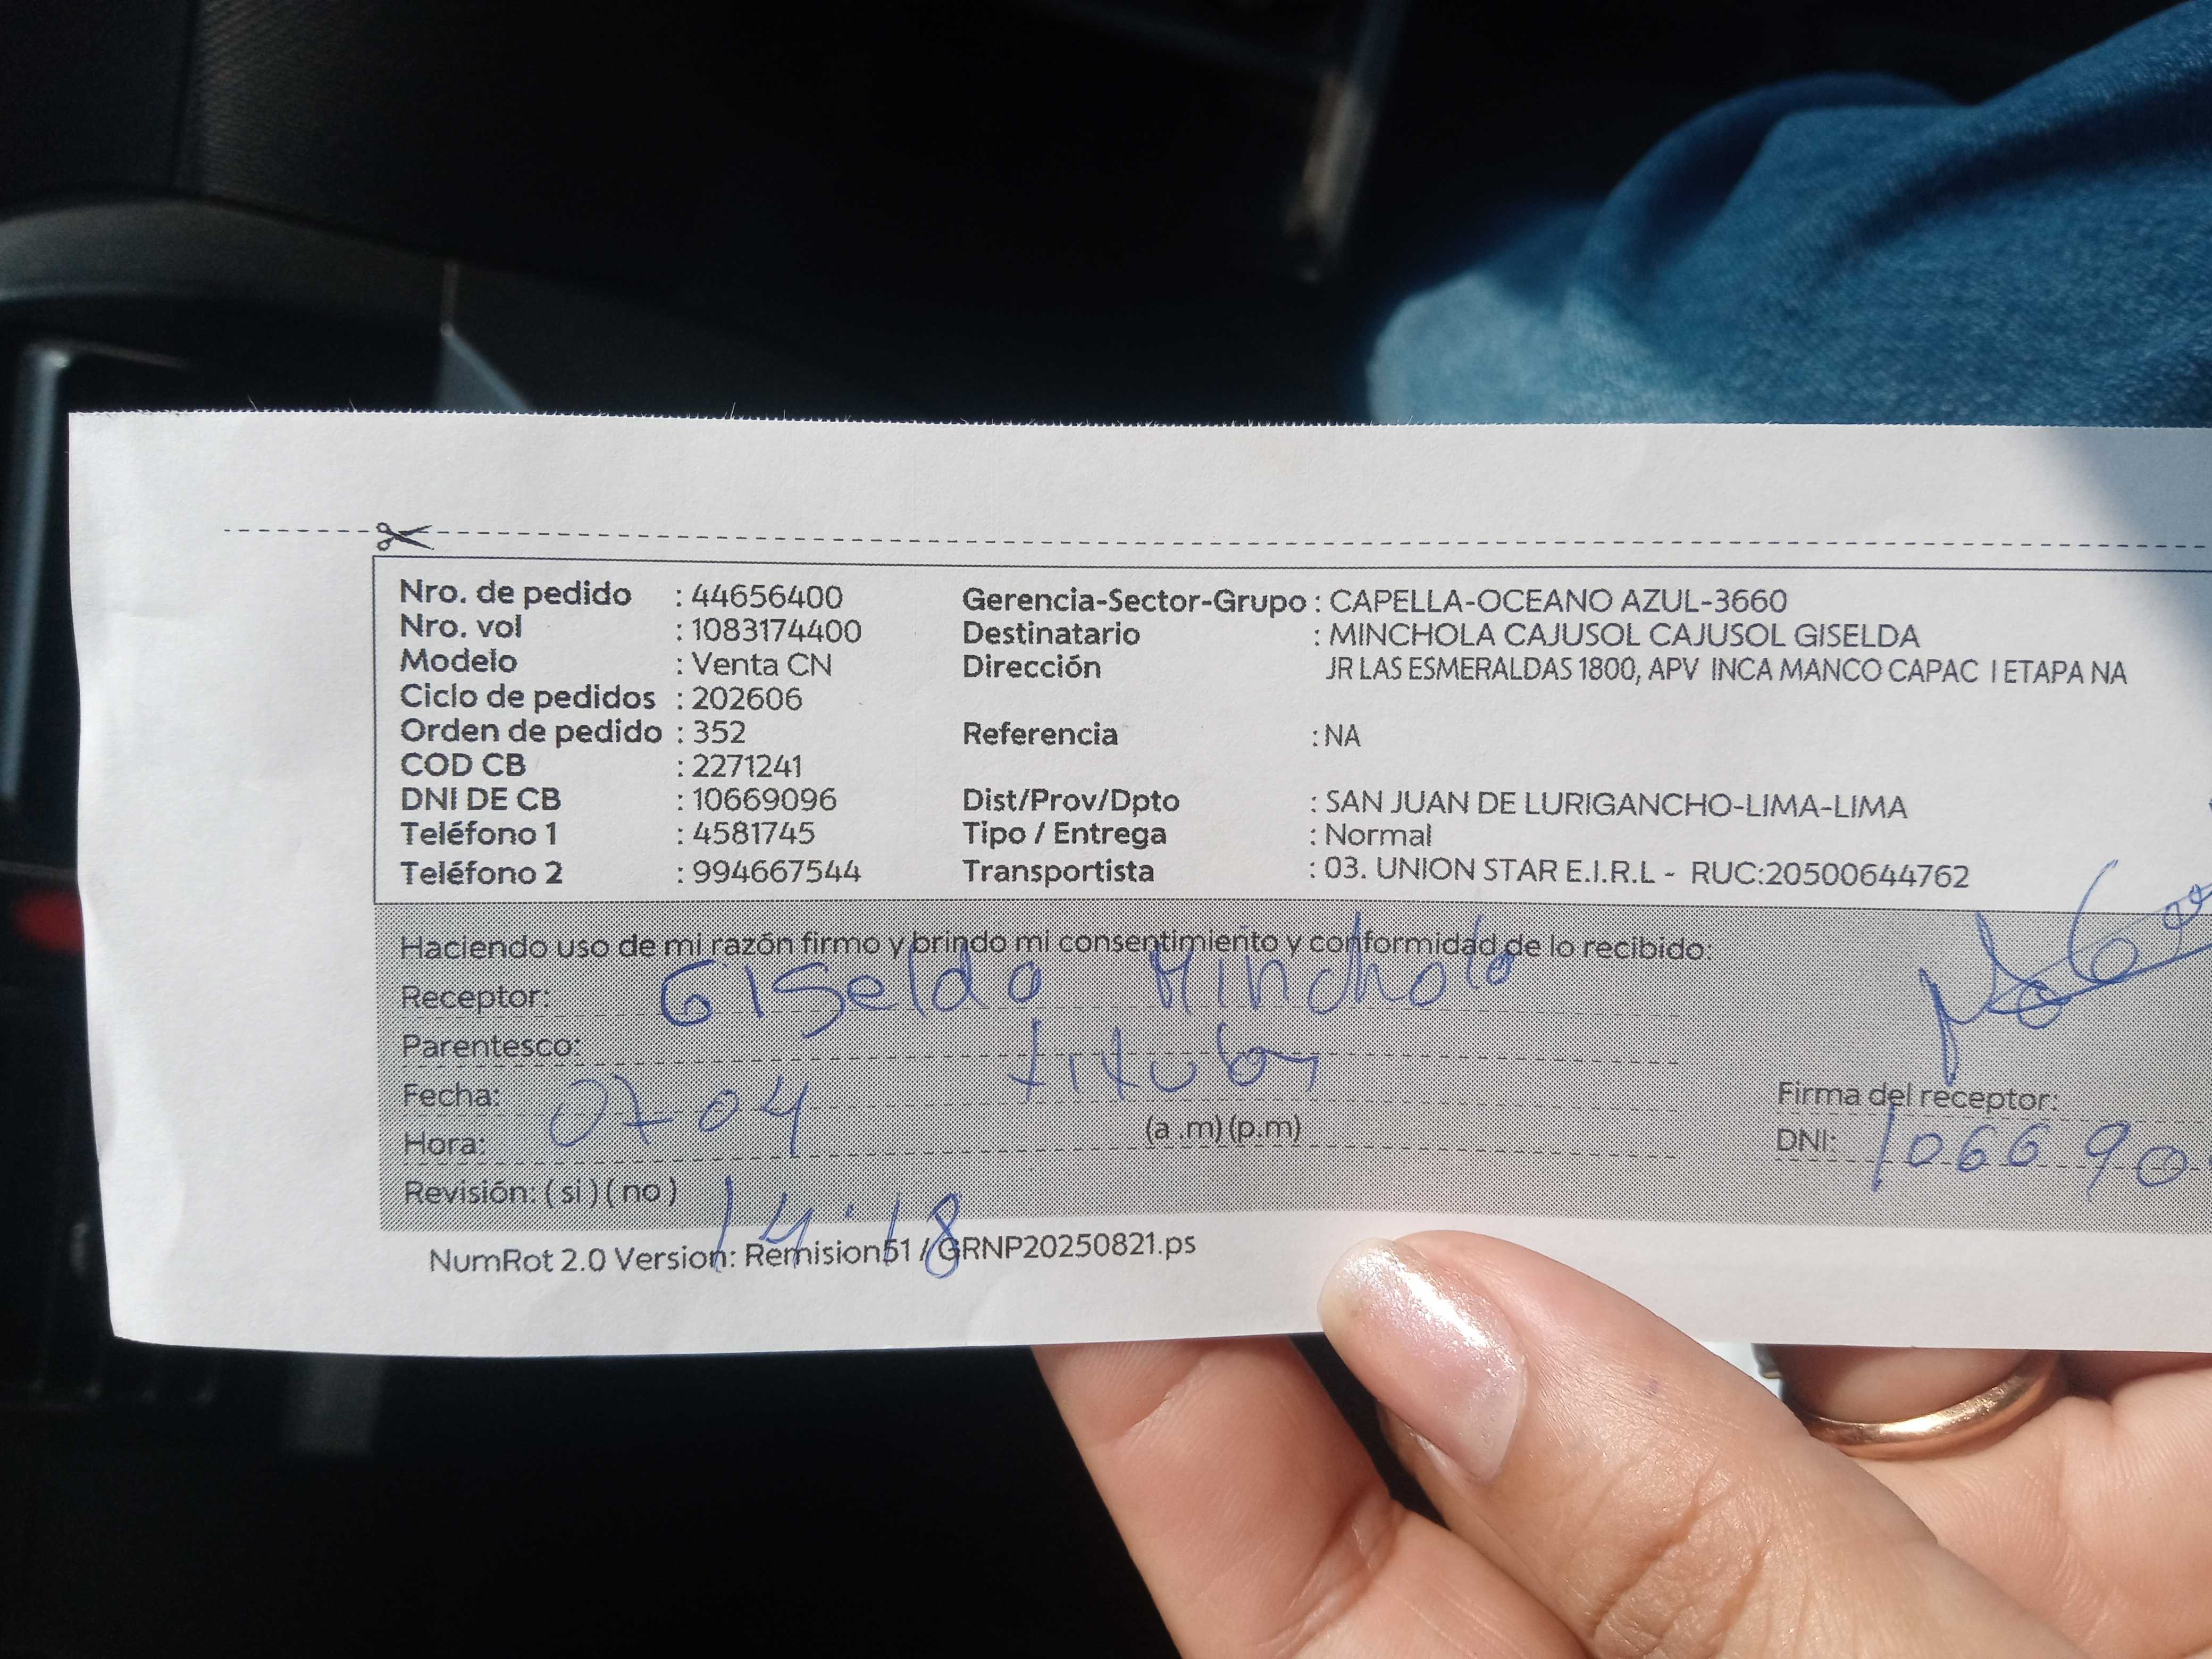 Nro. de pedido : 44656400 Gerencia-Sector-Grupo : CAPELLA-OCEANO AZUL-3660
Nro. vol : 1083174400 Destinatario : MINCHOLA CAJUSOL CAJUSOL GISELDA
Modelo : Venta CN Dirección JR LAS ESMERALDAS 1800, APV INCA MANCO CAPAC I ETAPA NA
Ciclo de pedidos : 202606
Orden de pedido : 352 Referencia : NA
COD CB : 2271241
DNI DE CB : 10669096 Dist/Prov/Dpto : SAN JUAN DE LURIGANCHO-LIMA-LIMA
Teléfono 1 : 4581745 Tipo / Entrega : Normal
Teléfono 2 : 994667544 Transportista : 03. UNION STAR E.I.R.L - RUC:20500644762
Haciendo uso de mi razón firmo y brindo mi consentimiento y conformidad de lo recibido:
Receptor: Giselda Minchola
Parentesco: titular
Fecha: 07 04 Firma del receptor:
Hora: (a .m) (p.m) DNI: 106690
Revisión: ( si ) ( no ) 14:18
NumRot 2.0 Version: Remision51 / GRNP20250821.ps